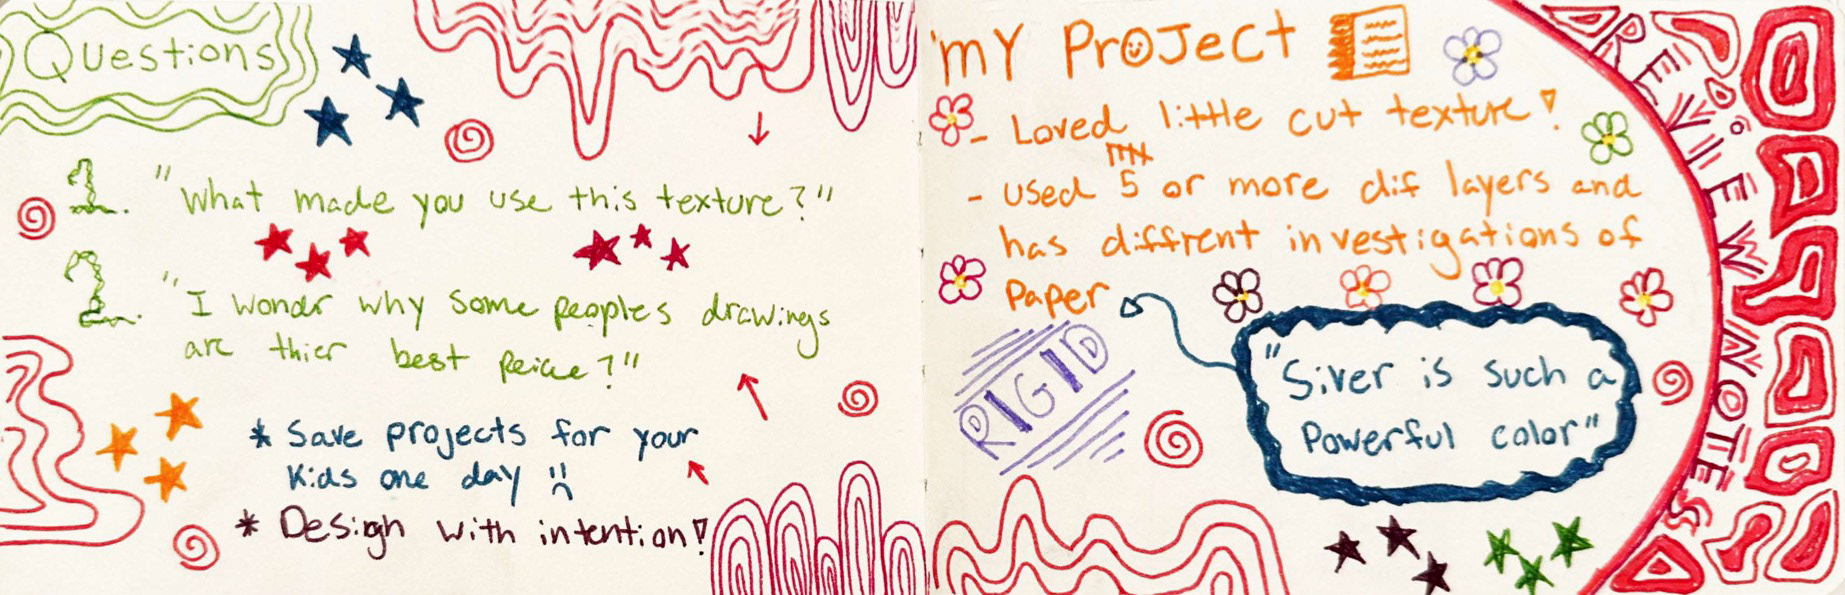 Questions
1. "What made you use this texture?"
2. "I wondr why some peoples drawings
are thier best Peice?"
* Save projects for your
kids one day
* Design with intention!
MY ProJect
- Loved little cut texture!
- used 5 or more dif layers and
has diffrent investigations of
Paper
RIGID
"Silver is such a
Powerful color"
REVIEW NOTES